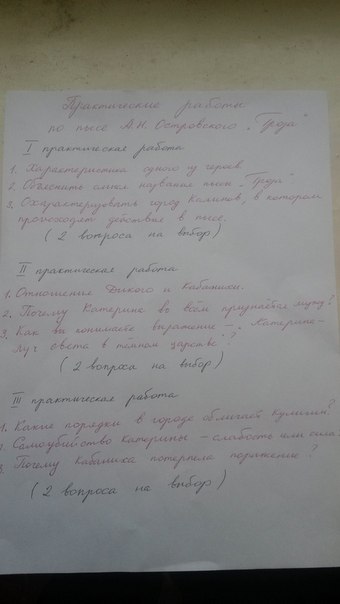 Практические работы
по пьесе А.Н. Островского „Гроза"
I практическая работа
1. Характеристика одного из героев
2. Объяснить смысл названия пьесы „Гроза"
3. Охарактеризовать город Калинов, в котором
происходят действие в пьесе.
(2 вопроса на выбор)
II практическая работа
1. Отношение Дикого и Кабанихи.
2. Почему Катерина во всём признаётся мужу?
3. Как вы понимаете выражение – „Катерина–
луч света в тёмном царстве"?
(2 вопроса на выбор)
III практическая работа
1. Какие порядки в городе обличает Кулигин?
2. Самоубийство Катерины – слабость или сила
3. Почему Кабаниха потерпела поражение?
(2 вопроса на выбор)